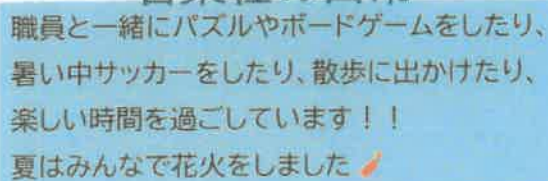 職員と一緒にパズルやボードゲームをしたり、
暑い中サッカーをしたり、散歩に出かけたり、
楽しい時間を過ごしています！！
夏はみんなで花火をしました